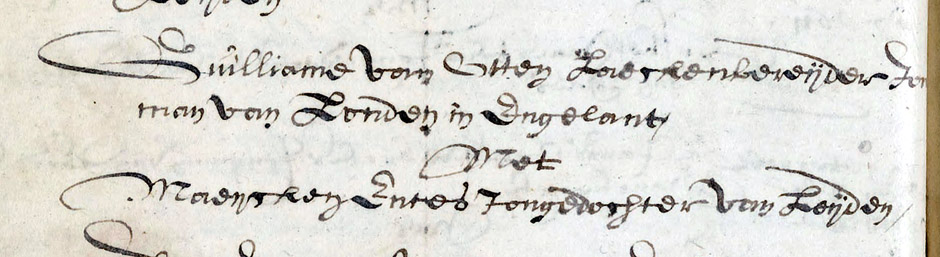 Guilliame van Otten Laeckenbereijder Jon
man van Londen in Engelant,
Met
Maeijcken Entes Jongedochter van Leijden,